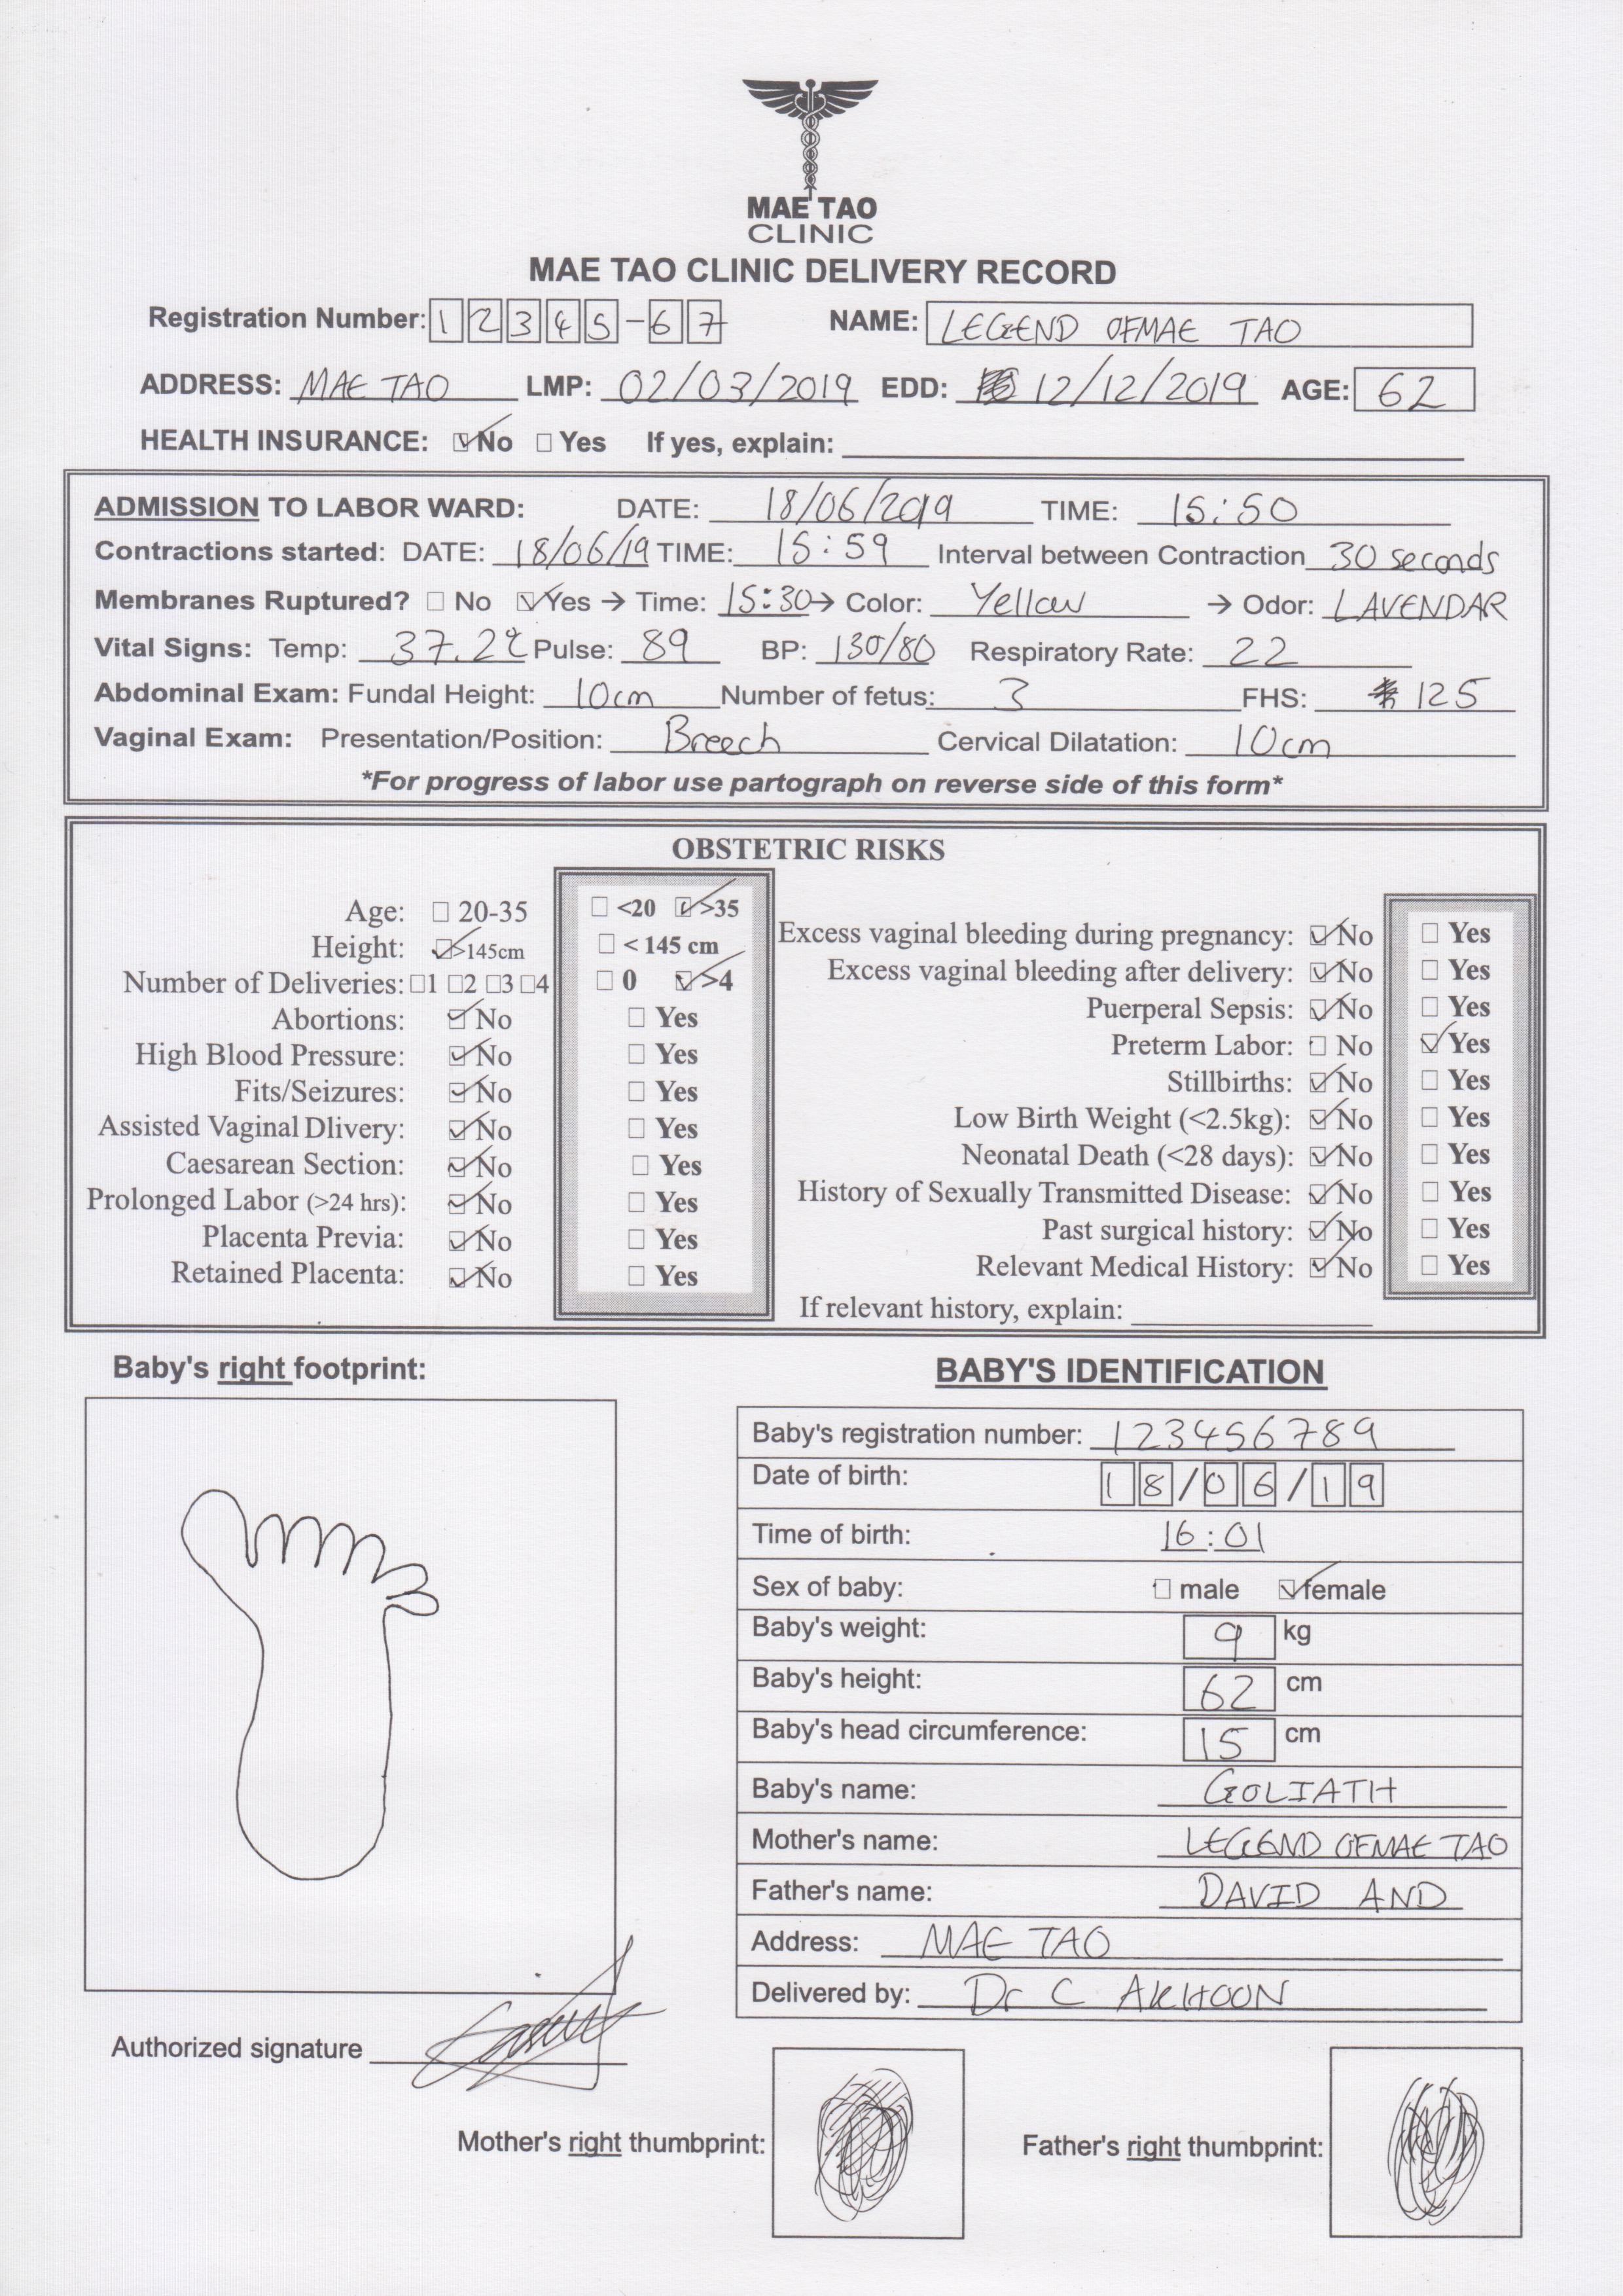 MAE TAO
CLINIC
MAE TAO CLINIC DELIVERY RECORD
Registration Number: 1 2 3 4 5 - 6 7 NAME: LEGEND OFMAE TAO
ADDRESS: MAE TAO LMP: 02/03/2019 EDD: 12/12/2019 AGE: 62
HEALTH INSURANCE: ☑ No ☐ Yes If yes, explain:
ADMISSION TO LABOR WARD: DATE: 18/06/2019 TIME: 15:50
Contractions started: DATE: 18/06/19 TIME: 15:59 Interval between Contraction 30 seconds
Membranes Ruptured? ☐ No ☑ Yes → Time: 15:30 → Color: Yellow → Odor: LAVENDAR
Vital Signs: Temp: 37.2°C Pulse: 89 BP: 130/80 Respiratory Rate: 22
Abdominal Exam: Fundal Height: 10cm Number of fetus: 3 FHS: 125
Vaginal Exam: Presentation/Position: Breech Cervical Dilatation: 10cm
*For progress of labor use partograph on reverse side of this form*
OBSTETRIC RISKS
Age: ☐ 20-35 ☐ <20 ☑ >35
Height: ☑ >145cm ☐ < 145 cm
Number of Deliveries: ☐1 ☐2 ☐3 ☐4 ☐ 0 ☑ >4
Abortions: ☑ No ☐ Yes
High Blood Pressure: ☑ No ☐ Yes
Fits/Seizures: ☑ No ☐ Yes
Assisted Vaginal Dlivery: ☑ No ☐ Yes
Caesarean Section: ☑ No ☐ Yes
Prolonged Labor (>24 hrs): ☑ No ☐ Yes
Placenta Previa: ☑ No ☐ Yes
Retained Placenta: ☑ No ☐ Yes
Excess vaginal bleeding during pregnancy: ☑ No ☐ Yes
Excess vaginal bleeding after delivery: ☑ No ☐ Yes
Puerperal Sepsis: ☑ No ☐ Yes
Preterm Labor: ☐ No ☑ Yes
Stillbirths: ☑ No ☐ Yes
Low Birth Weight (<2.5kg): ☑ No ☐ Yes
Neonatal Death (<28 days): ☑ No ☐ Yes
History of Sexually Transmitted Disease: ☑ No ☐ Yes
Past surgical history: ☑ No ☐ Yes
Relevant Medical History: ☑ No ☐ Yes
If relevant history, explain:
Baby's right footprint:
BABY'S IDENTIFICATION
Baby's registration number: 123456789
Date of birth: 18/06/19
Time of birth: 16:01
Sex of baby: ☐ male ☑ female
Baby's weight: 9 kg
Baby's height: 62 cm
Baby's head circumference: 15 cm
Baby's name: GOLIATH
Mother's name: LEGEND OFMAE TAO
Father's name: DAVID AND
Address: MAE TAO
Delivered by: Dr C AKHOON
Authorized signature
Mother's right thumbprint: Father's right thumbprint: